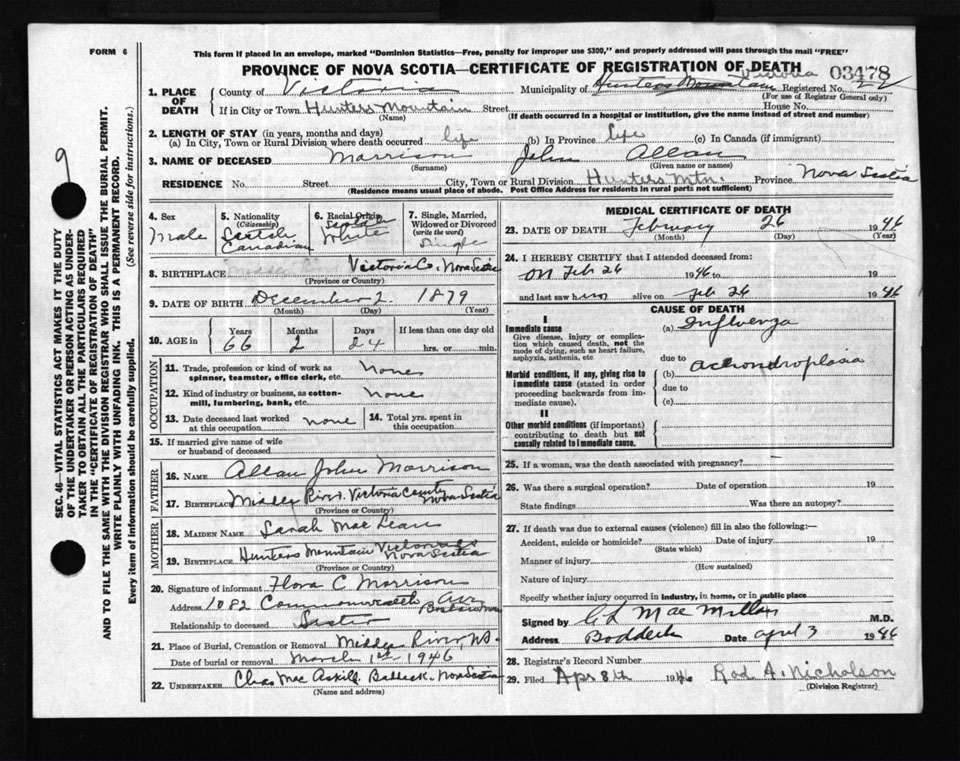 FORM 6
This form if placed in an envelope, marked "Dominion Statistics—Free, penalty for improper use $300," and properly addressed will pass through the mail "FREE"
PROVINCE OF NOVA SCOTIA—CERTIFICATE OF REGISTRATION OF DEATH
03478
1. PLACE OF DEATH
County of Victoria Municipality of Hunters Mountain Victoria Registered No.
(For use of Registrar General only)
If in City or Town Hunters Mountain Street House No.
(Name) (If death occurred in a hospital or institution, give the name instead of street and number)
2. LENGTH OF STAY (in years, months and days)
(a) In City, Town or Rural Division where death occurred life (b) In Province Life (c) In Canada (if immigrant)
3. NAME OF DECEASED Morrison John Allan
(Surname) (Given name or names)
RESIDENCE No. Street City, Town or Rural Division Hunters Mtn. Province Nova Scotia
(Residence means usual place of abode. Post Office Address for residents in rural parts not sufficient)
4. Sex
Male
5. Nationality
(Citizenship)
Scotch
Canadian
6. Racial Origin
Scotch
White
7. Single, Married, Widowed or Divorced
(write the word)
Single
8. BIRTHPLACE Middle R Victoria Co. Nova Scotia
(Province or Country)
9. DATE OF BIRTH December 2. 1879
(Month) (Day) (Year)
10. AGE in
Years Months Days If less than one day old
66 2 24 hrs. or min.
OCCUPATION
11. Trade, profession or kind of work as spinner, teamster, office clerk, etc. None
12. Kind of industry or business, as cotton-mill, lumbering, bank, etc. None
13. Date deceased last worked at this occupation none
14. Total yrs. spent in this occupation
15. If married give name of wife or husband of deceased
FATHER
16. NAME Allan John Morrison
17. BIRTHPLACE Middle River, Victoria County Nova Scotia
(Province or Country)
MOTHER
18. MAIDEN NAME Sarah MacLean
19. BIRTHPLACE Hunters Mountain Victoria Co Nova Scotia
(Province or Country)
20. Signature of informant Flora C Morrison
Address 1082 Commonwealth Ave Boston Mass
Relationship to deceased Sister
21. Place of Burial, Cremation or Removal Middle River, NS.
Date of burial or removal March 1st 1946
22. UNDERTAKER Chas MacAskill Baddeck. Nova Scotia
(Name and address)
MEDICAL CERTIFICATE OF DEATH
23. DATE OF DEATH February 26 1946
(Month) (Day) (Year)
24. I HEREBY CERTIFY that I attended deceased from:
on Feb 26 1946 to 19
and last saw him alive on Feb 26 1946
CAUSE OF DEATH
I
Immediate cause
Give disease, injury or complication which caused death, not the mode of dying, such as heart failure, asphyxia, asthenia, etc
(a) Influenza
due to
Morbid conditions, if any, giving rise to immediate cause (stated in order proceeding backwards from immediate cause).
(b) achondroplasia
due to
(c)
II
Other morbid conditions (if important) contributing to death but not causally related to immediate cause.
25. If a woman, was the death associated with pregnancy?
26. Was there a surgical operation? Date of operation 19
State findings Was there an autopsy?
27. If death was due to external causes (violence) fill in also the following:—
Accident, suicide or homicide? Date of injury 19
(State which)
Manner of injury
(How sustained)
Nature of injury
Specify whether injury occurred in industry, in home, or in public place
Signed by C L MacMillan M.D.
Address Baddeck Date April 3 1946
28. Registrar's Record Number
29. Filed Apr 8th 1946 Rod A. Nicholson
(Division Registrar)
9
SEC. 46—VITAL STATISTICS ACT MAKES IT THE DUTY
OF THE UNDERTAKER OR PERSON ACTING AS UNDER-
TAKER TO OBTAIN ALL THE PARTICULARS REQUIRED
IN THE "CERTIFICATE OF REGISTRATION OF DEATH"
AND TO FILE THE SAME WITH THE DIVISION REGISTRAR WHO SHALL ISSUE THE BURIAL PERMIT.
WRITE PLAINLY WITH UNFADING INK. THIS IS A PERMANENT RECORD.
Every item of information should be carefully supplied. (See reverse side for instructions.)